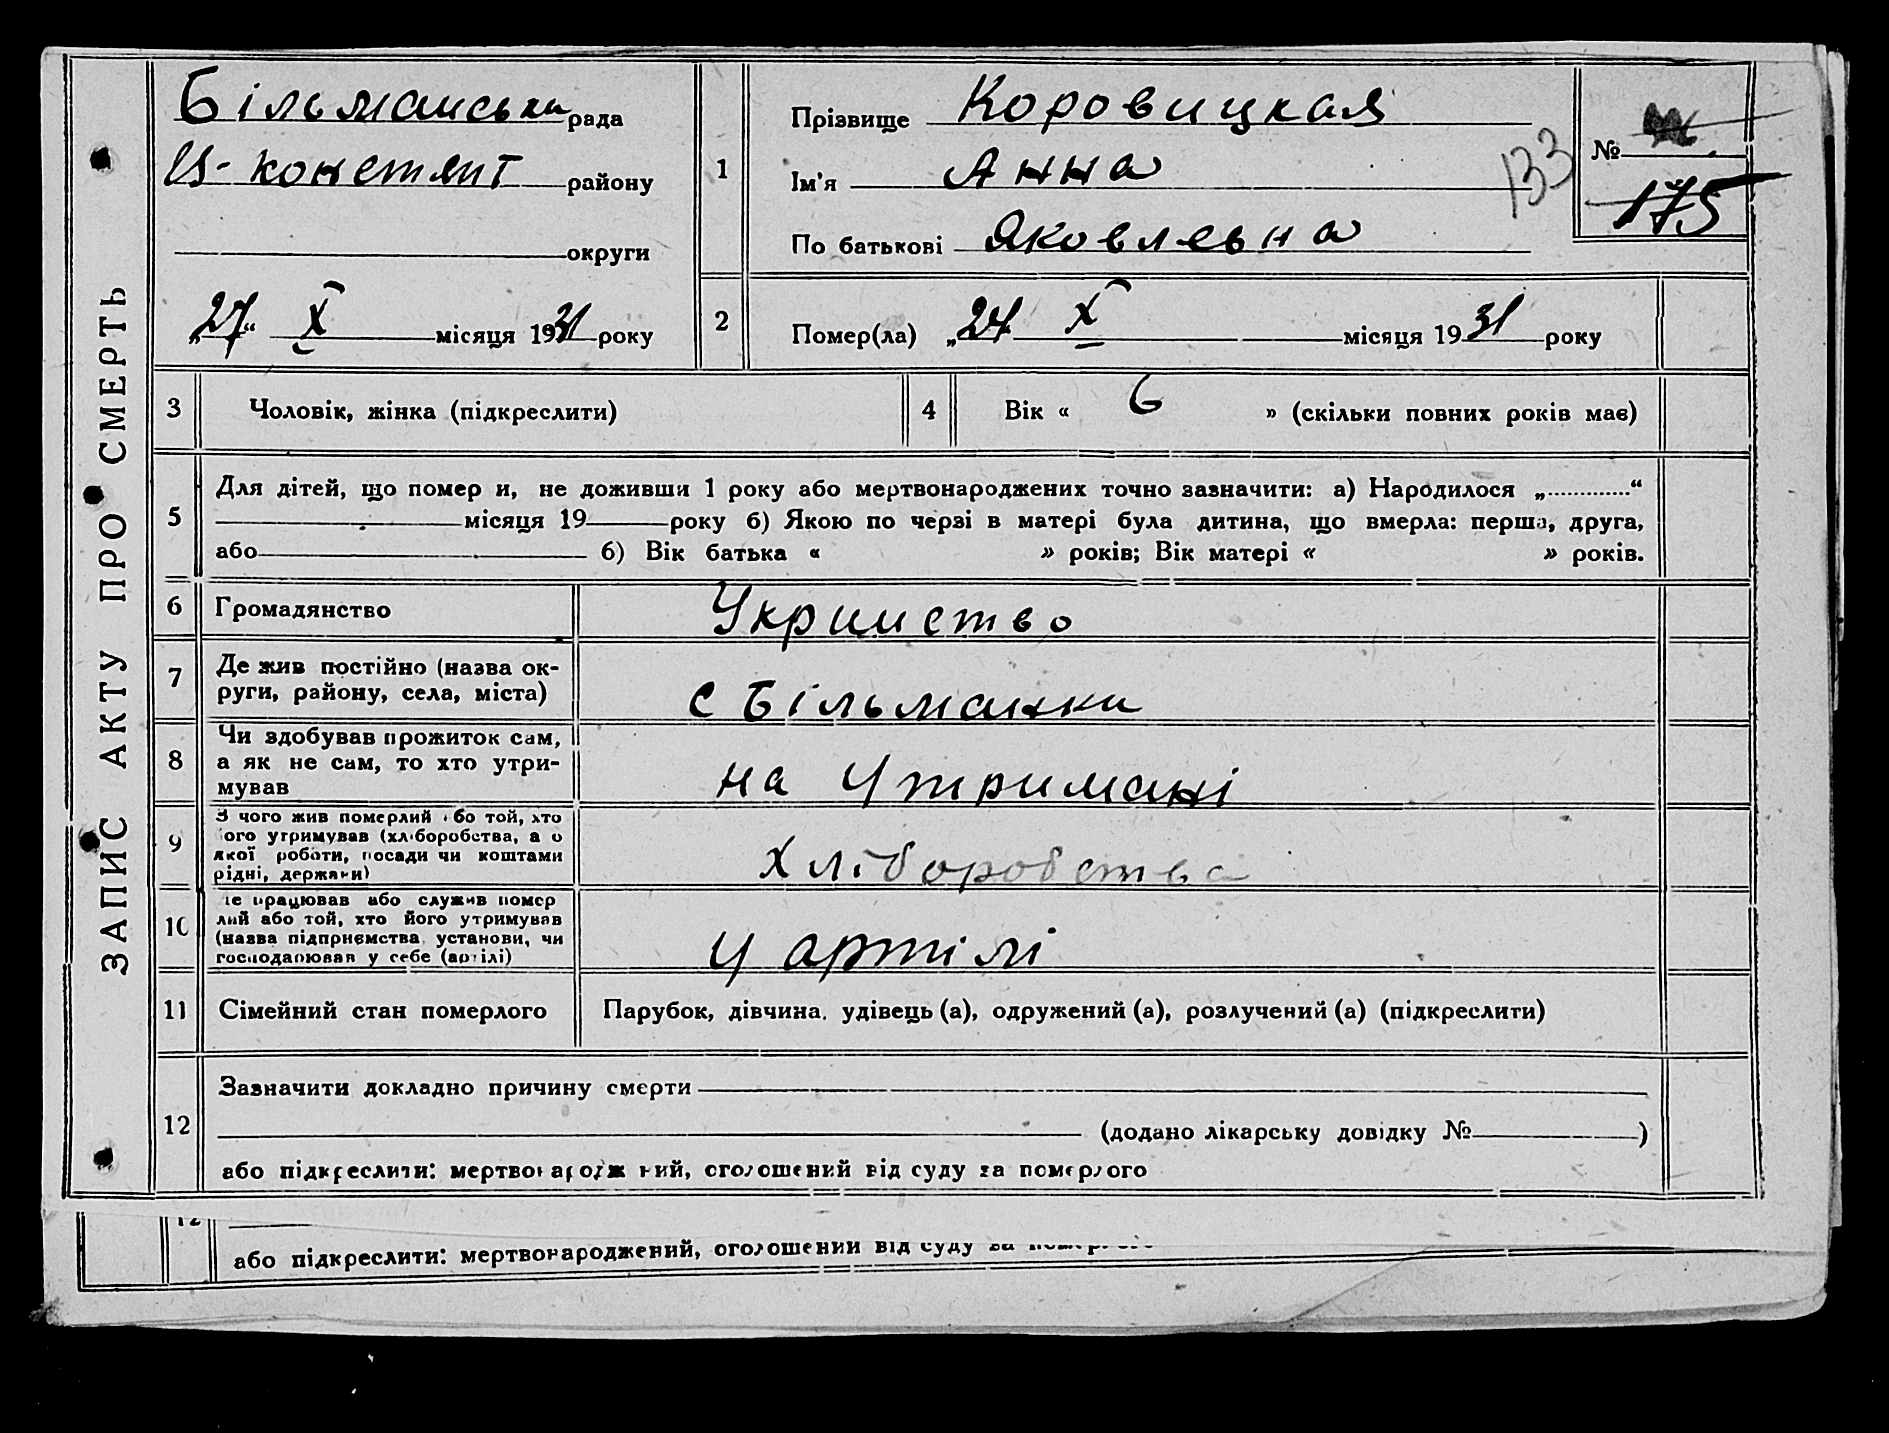 ЗАПИС АКТУ ПРО СМЕРТЬ
Більманська рада
района
округи
„27“ X місяця 1931 року
1
Прізвище Коровицкая
Ім'я Анна
По батькові Яковлевна
133
№
175
2
Помер(ла) „24 X місяця 1931 року
3 Чоловік, жінка (підкреслити)
4 Вік « 6 » (скільки повних років має)
5
Для дітей, що помер и, не доживши 1 року або мертвонароджених точно зазначити: а) Народилося „ “
місяця 19 року б) Якою по черзі в матері була дитина, що вмерла: перша, друга,
або б) Вік батька « » років; Вік матері « » років.
6 Громадянство
7 Де жив постійно (назва ок-
руги, району, села, міста)
с Більманки
8 Чи здобував прожиток сам,
а як не сам, то хто утри-
мував
на утримані
9 З чого жив померлий або той, хто
його утримував (хліборобства, а о
якої роботи, посади чи коштами
рідні, держави)
хліборобства
10 Де працював або служив помер
лий або той, хто його утримував
(назва підприємства установи, чи
господарював у себе (артілі)
у артілі
11 Сімейний стан померлого
Парубок, дівчина, удівець (а), одружений (а), розлучений (а) (підкреслити)
12
Зазначити докладно причину смерти
(додано лікарську довідку № )
або підкреслити: мертвонароджений, оголошений від суду за померлого
12
або підкреслити: мертвонароджений, оголошений від суду за